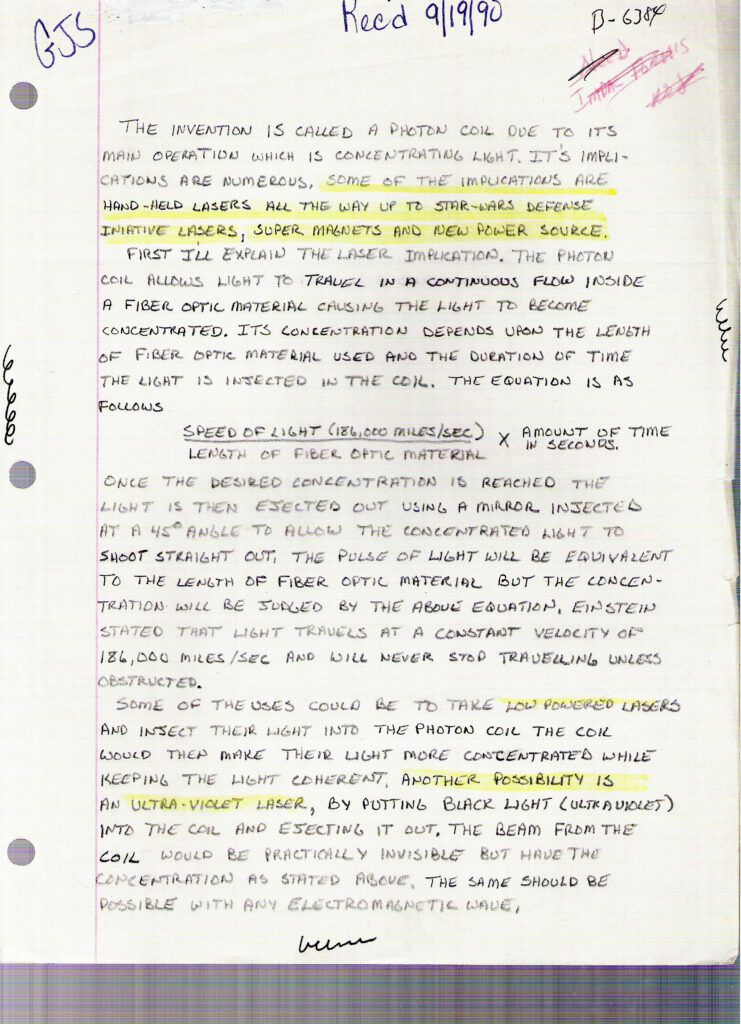 GJS
Rec'd 9/19/90
B-6384
Need
THE INVENTION IS CALLED A PHOTON COIL DUE TO ITS
MAIN OPERATION WHICH IS CONCENTRATING LIGHT. IT'S IMPLI-
CATIONS ARE NUMEROUS. SOME OF THE IMPLICATIONS ARE
HAND-HELD LASERS ALL THE WAY UP TO STAR-WARS DEFENSE
INIATIVE LASERS, SUPER MAGNETS AND NEW POWER SOURCE.
FIRST I'LL EXPLAIN THE LASER IMPLICATION. THE PHOTON
COIL ALLOWS LIGHT TO TRAVEL IN A CONTINUOUS FLOW INSIDE
A FIBER OPTIC MATERIAL CAUSING THE LIGHT TO BECOME
CONCENTRATED. ITS CONCENTRATION DEPENDS UPON THE LENGTH
OF FIBER OPTIC MATERIAL USED AND THE DURATION OF TIME
THE LIGHT IS INJECTED IN THE COIL. THE EQUATION IS AS
FOLLOWS
SPEED OF LIGHT (186,000 MILES/SEC) X AMOUNT OF TIME
LENGTH OF FIBER OPTIC MATERIAL IN SECONDS.
ONCE THE DESIRED CONCENTRATION IS REACHED THE
LIGHT IS THEN EJECTED OUT USING A MIRROR INJECTED
AT A 45° ANGLE TO ALLOW THE CONCENTRATED LIGHT TO
SHOOT STRAIGHT OUT. THE PULSE OF LIGHT WILL BE EQUIVALENT
TO THE LENGTH OF FIBER OPTIC MATERIAL BUT THE CONCEN-
TRATION WILL BE JUDGED BY THE ABOVE EQUATION. EINSTEIN
STATED THAT LIGHT TRAVELS AT A CONSTANT VELOCITY OF
186,000 MILES/SEC AND WILL NEVER STOP TRAVELLING UNLESS
OBSTRUCTED.
SOME OF THE USES COULD BE TO TAKE LOW POWERED LASERS
AND INJECT THEIR LIGHT INTO THE PHOTON COIL THE COIL
WOULD THEN MAKE THEIR LIGHT MORE CONCENTRATED WHILE
KEEPING THE LIGHT COHERENT. ANOTHER POSSIBILITY IS
AN ULTRA-VIOLET LASER, BY PUTTING BLACK LIGHT (ULTRAVIOLET)
INTO THE COIL AND EJECTING IT OUT. THE BEAM FROM THE
COIL WOULD BE PRACTICALLY INVISIBLE BUT HAVE THE
CONCENTRATION AS STATED ABOVE. THE SAME SHOULD BE
POSSIBLE WITH ANY ELECTROMAGNETIC WAVE.